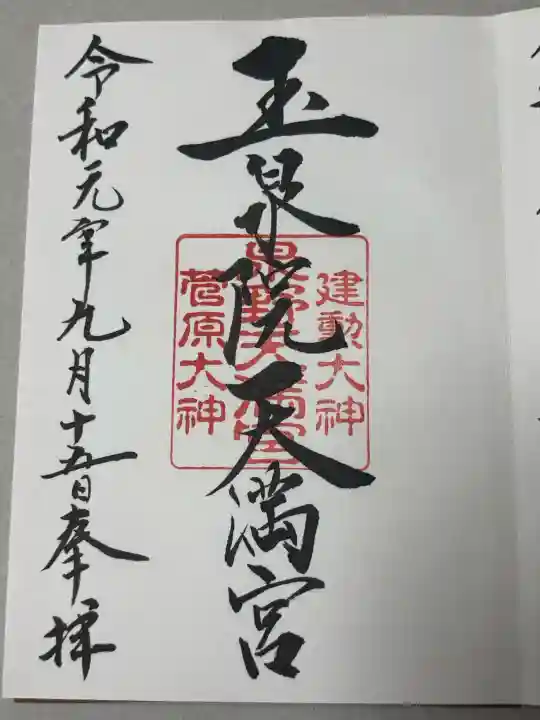 玉泉院天満宮
建動大神
菅原大神
令和元年九月十五日奉拝